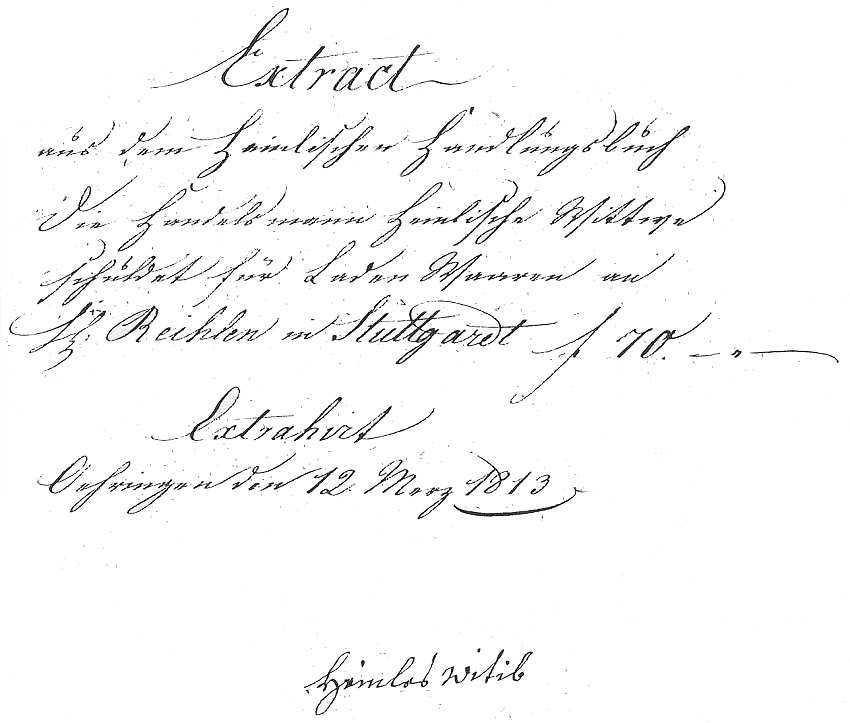 Extract
aus dem Heimlischen Handlungsbuch
Die Handelsmann Heimlische Wittwe
schuldet für Laden Waaren an
Reihlen in Stuttgardt f 70. — " —
Extrahirt
Oehringen den 12. Merz 1813
Heimles Witib